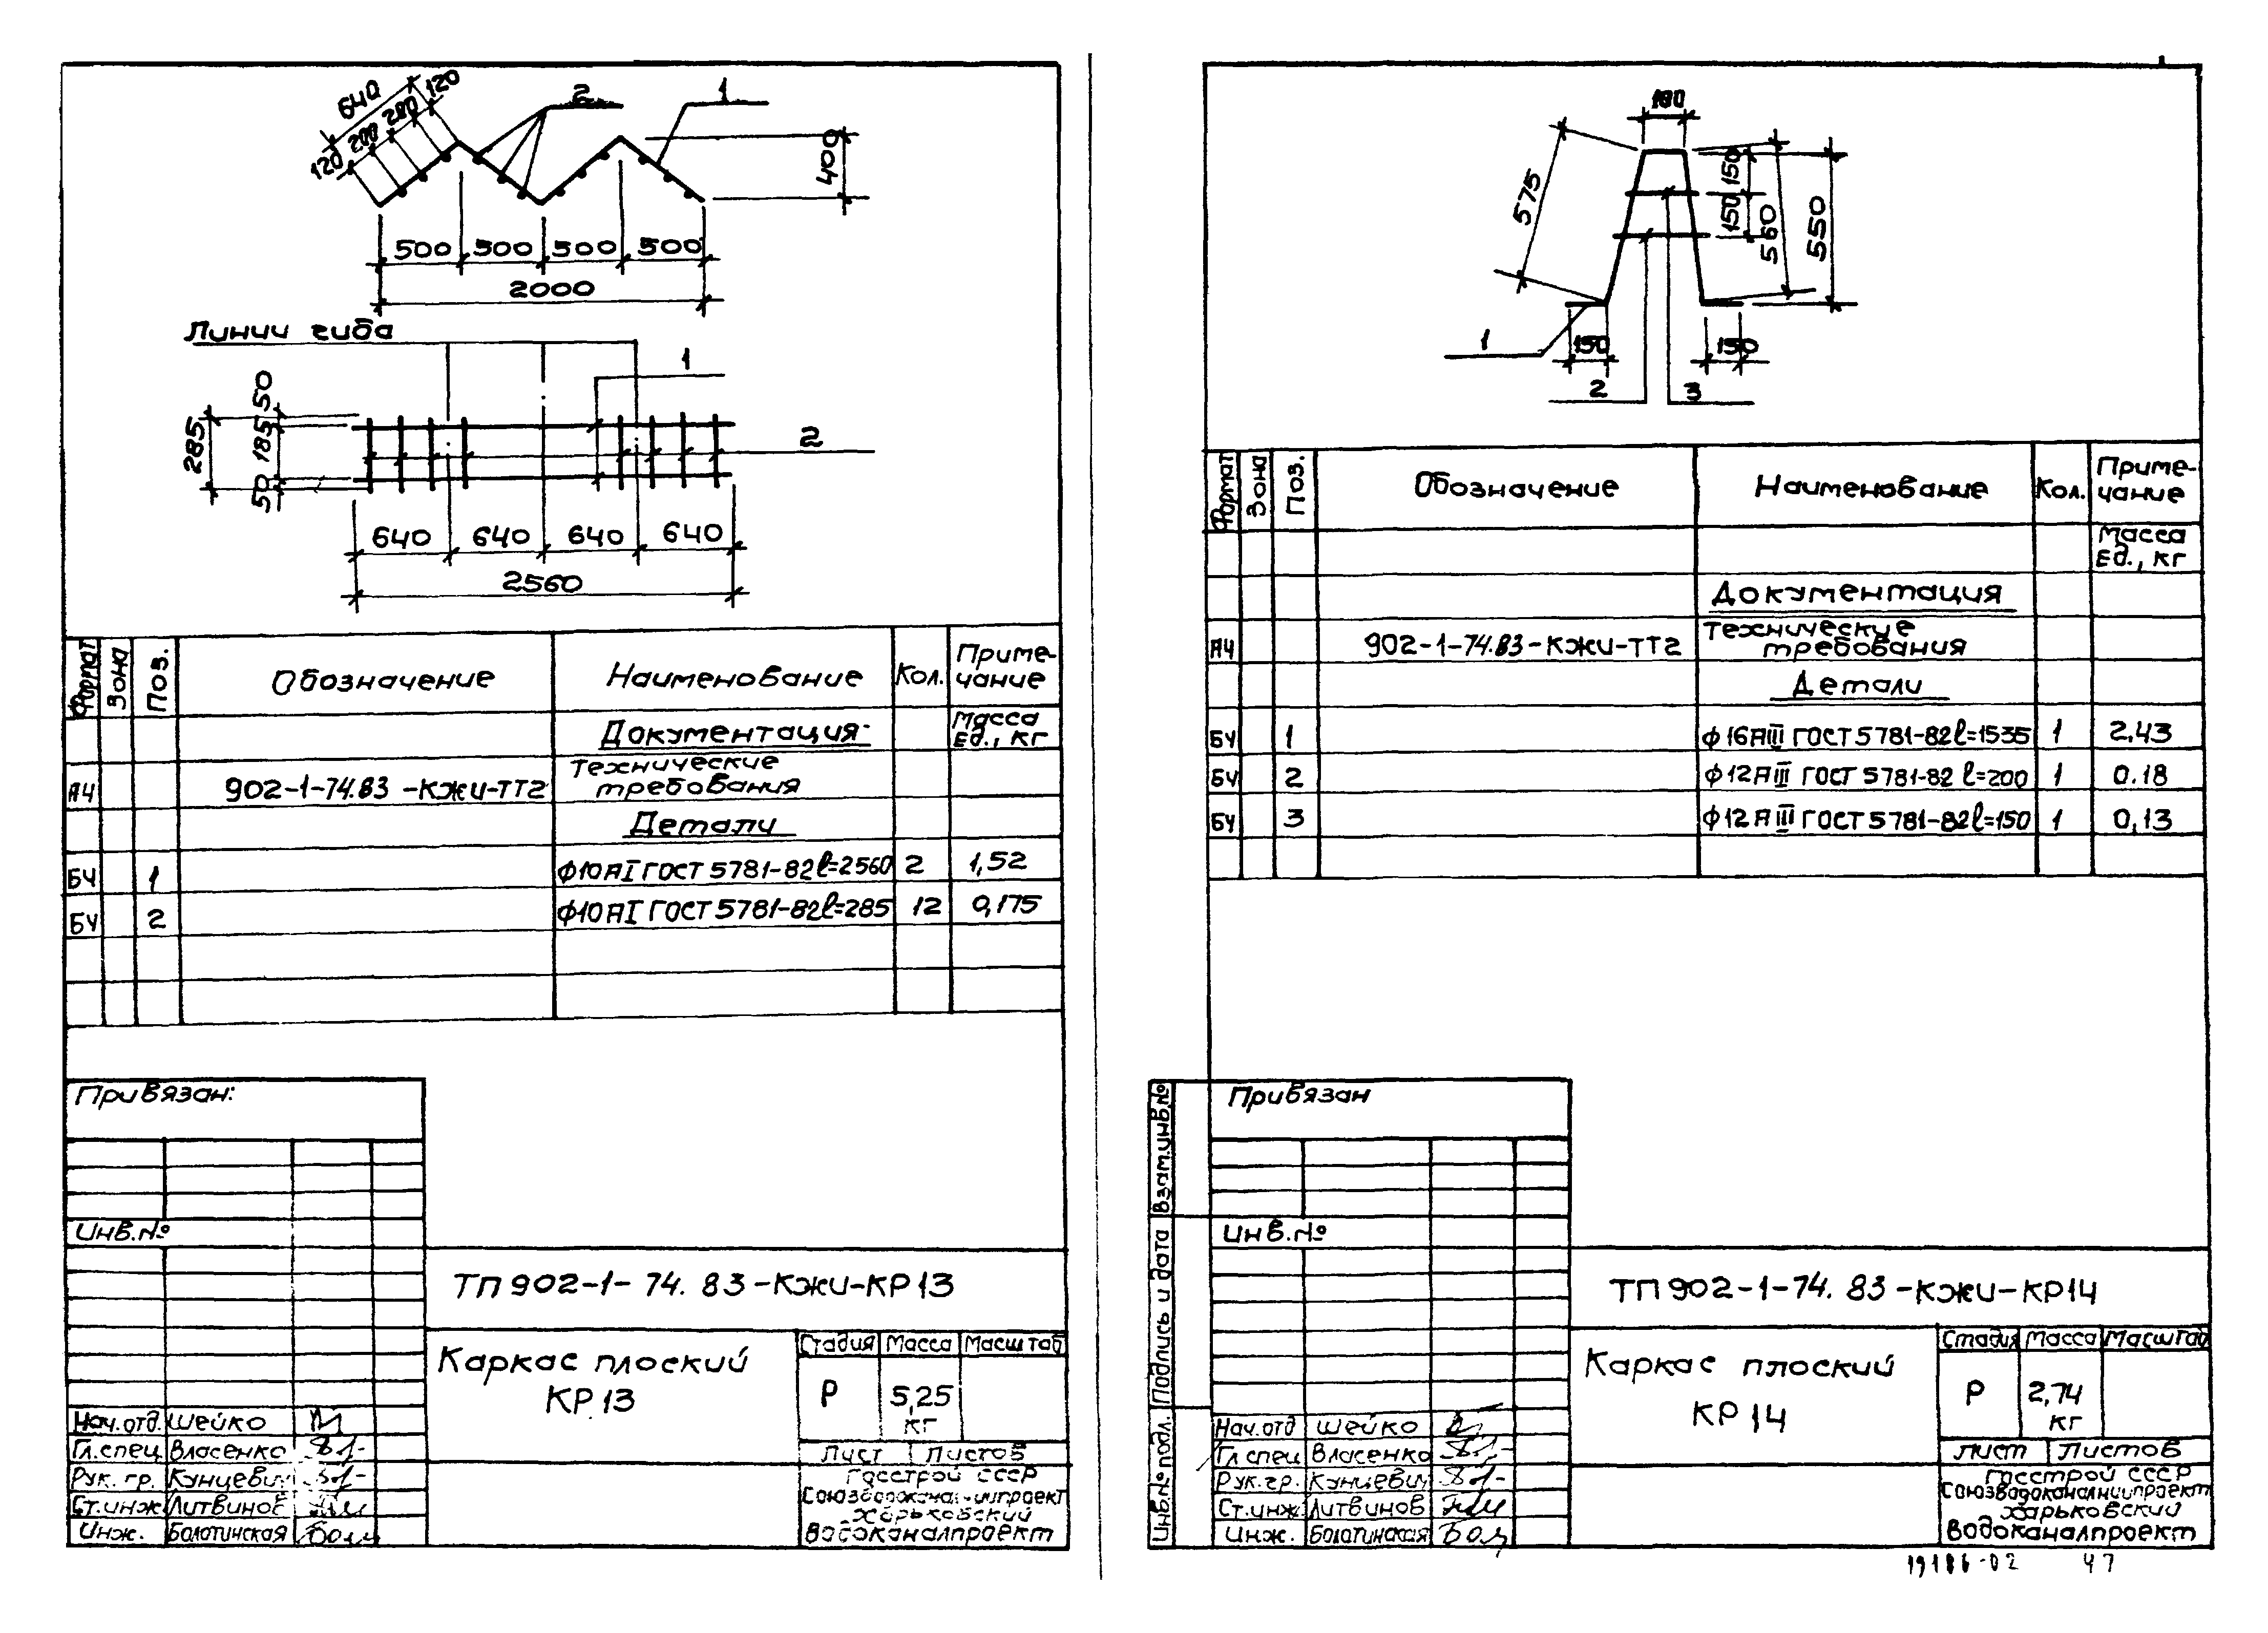 640
120 200 280 120
2
1
400
500 500 500 500
2000
Линии гиба
1
50
285 185
50
2
640 640 640 640
2560
Формат Зона Поз. Обозначение Наименование Кол. Приме-
чание
Документация Масса
ед., кг
А4 902-1-74.83-КЖИ-ТТ2 Технические
требования
Детали
БЧ 1 ф10АI ГОСТ 5781-82 ℓ=2560 2 1,52
БЧ 2 ф10АI ГОСТ 5781-82 ℓ=285 12 0,175
Привязан:
Инв.№
ТП 902-1-74.83-КЖИ-КР13
Каркас плоский
КР13
Стадия Масса Масштаб
Р 5,25
кг
Лист Листов
Нач.отд. Шейко
Гл.спец Власенко
Рук.гр. Кунцевич
Ст.инж Литвинов
Инж. Болотинская
Госстрой СССР
Союзводоканалниипроект
Харьковский
Водоканалпроект
180
575
150
150
560
550
1
150 150
2 3
Формат Зона Поз. Обозначение Наименование Кол. Приме-
чание
Масса
ед., кг
Документация
А4 902-1-74.83-КЖИ-ТТ2 Технические
требования
Детали
БЧ 1 ф16АIII ГОСТ 5781-82 ℓ=1535 1 2,43
БЧ 2 ф12АIII ГОСТ 5781-82 ℓ=200 1 0.18
БЧ 3 ф12АIII ГОСТ 5781-82 ℓ=150 1 0,13
Взам.инв.№
Подпись и дата
Инв.№ подл.
Привязан
Инв.№
ТП 902-1-74.83-КЖИ-КР14
Каркас плоский
КР14
Стадия Масса Масштаб
Р 2,74
кг
Лист Листов
Нач.отд Шейко
Гл.спец Власенко
Рук.гр. Кунцевич
Ст.инж Литвинов
Инж. Болотинская
Госстрой СССР
Союзводоканалниипроект
Харьковский
Водоканалпроект
19186-02 47